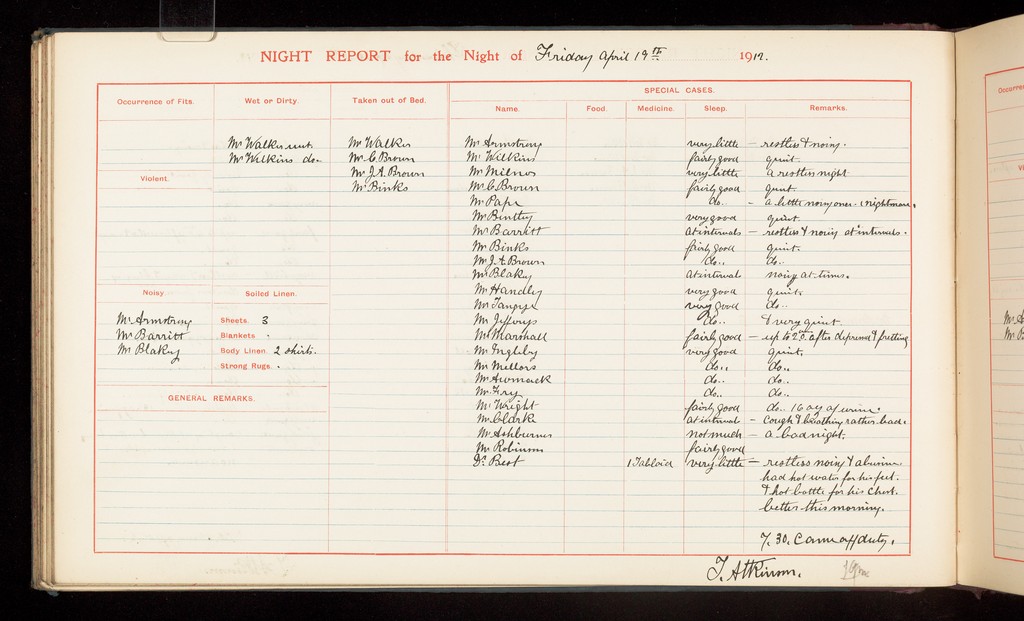 NIGHT REPORT for the Night of Friday April 19th 1912.
Occurrence of Fits.
Wet or Dirty.
Taken out of Bed.
SPECIAL CASES.
Name. Food. Medicine. Sleep. Remarks.
Mr Walker wet
Mr Wilkins do..
Mr Walker
Mr C. Brown
Mr J.A. Brown
Mr Binks
Violent.
Noisy.
Mr Armstrong
Mr Barritt
Mr Blakey
Soiled Linen.
Sheets. 3
Blankets "
Body Linen. 2 shirts.
Strong Rugs. "
GENERAL REMARKS.
Mr Armstrong very little – restless & noisy.
Mr Wilkins fairly good quiet.
Mr Milnes very little a restless night
Mr C. Brown fairly good quiet.
Mr Pape do.. – a little noisy once. (nightmare.
Mr Bentley very good quiet.
Mr Barritt at intervals – restless & noisy at intervals.
Mr Binks fairly good quiet.
Mr J.A. Brown do.. do..
Mr Blakey at interval noisy at times.
Mr Handley very good quiet.
Mr Tangye very good do..
Mr Jefferys do.. & very quiet.
Mr Marshall fairly good – up to 2 after depressed & fretting
Mr Ingleby very good quiet.
Mr Mellors do.. do..
Mr Awmack do.. do..
Mr Fry do.. do..
Mr Wright fairly good do.. 16 oz of urine.
Mr Clarke at interval – cough & breathing rather bad.
Mr Ashburner not much – a bad night.
Mr Robinson fairly good
Dr Best 1 Tabloid very little – restless noisy & abusive
had hot water for his feet.
& hot bottle for his chest.
better this morning.
7.30. Came off duty.
T. Atkinson.
Occurrence